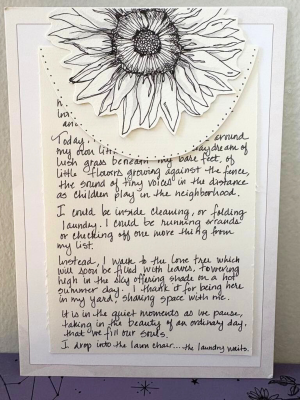 h
and
Today, around
my own litt daydream of
lush grass beneath my bare feet, of
little flowers growing against the fence,
the sound of tiny voices in the distance
as children play in the neighborhood.
I could be inside cleaning, or folding
laundry. I could be running errands
or checking off one more thing from
my list.
Instead, I walk to the lone tree which
will soon be filled with leaves, towering
high in the sky offering shade on a hot
summer day. I thank it for being here
in my yard, sharing space with me.
It is in the quiet moments as we pause,
taking in the beauty of an ordinary day,
that we fill our souls.
I drop into the lawn chair....the laundry waits.